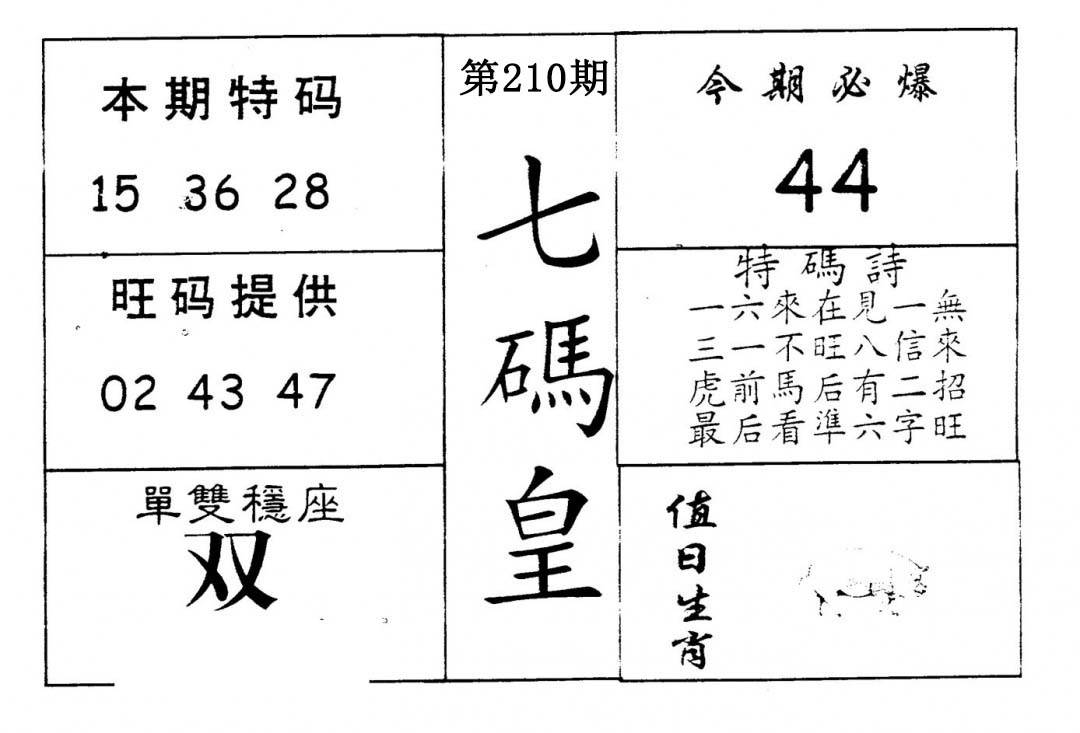 本期特码
15 36 28
旺码提供
02 43 47
單雙穩座
双
第210期
七碼皇
今期必爆
44
特碼詩
一六來在見一無
三一不旺八信來
虎前馬后有二招
最后看準六字旺
值日生肖